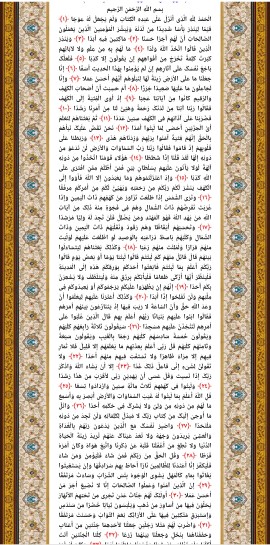 بسم الله الرحمن الرحيم
الحمد لله الذي أنزل على عبده الكتاب ولم يجعل له عوجا ﴿١﴾
قيما لينذر بأسا شديدا من لدنه ويبشر المؤمنين الذين يعملون
الصالحات أن لهم أجرا حسنا ﴿٢﴾ ماكثين فيه أبدا ﴿٣﴾ وينذر
الذين قالوا اتخذ الله ولدا ﴿٤﴾ ما لهم به من علم ولا لآبائهم
كبرت كلمة تخرج من أفواههم إن يقولون إلا كذبا ﴿٥﴾ فلعلك
باخع نفسك على آثارهم إن لم يؤمنوا بهذا الحديث أسفا ﴿٦﴾ إنا
جعلنا ما على الأرض زينة لها لنبلوهم أيهم أحسن عملا ﴿٧﴾ وإنا
لجاعلون ما عليها صعيدا جرزا ﴿٨﴾ أم حسبت أن أصحاب الكهف
والرقيم كانوا من آياتنا عجبا ﴿٩﴾ إذ أوى الفتية إلى الكهف
فقالوا ربنا آتنا من لدنك رحمة وهيئ لنا من أمرنا رشدا ﴿١٠﴾
فضربنا على آذانهم في الكهف سنين عددا ﴿١١﴾ ثم بعثناهم لنعلم
أي الحزبين أحصى لما لبثوا أمدا ﴿١٢﴾ نحن نقص عليك نبأهم
بالحق إنهم فتية آمنوا بربهم وزدناهم هدى ﴿١٣﴾ وربطنا على
قلوبهم إذ قاموا فقالوا ربنا رب السماوات والأرض لن ندعو من
دونه إلها لقد قلنا إذا شططا ﴿١٤﴾ هؤلاء قومنا اتخذوا من دونه
آلهة لولا يأتون عليهم بسلطان بين فمن أظلم ممن افترى على
الله كذبا ﴿١٥﴾ وإذ اعتزلتموهم وما يعبدون إلا الله فأووا إلى
الكهف ينشر لكم ربكم من رحمته ويهيئ لكم من أمركم مرفقا
﴿١٦﴾ وترى الشمس إذا طلعت تزاور عن كهفهم ذات اليمين وإذا
غربت تقرضهم ذات الشمال وهم في فجوة منه ذلك من آيات
الله من يهد الله فهو المهتد ومن يضلل فلن تجد له وليا مرشدا
﴿١٧﴾ وتحسبهم أيقاظا وهم رقود ونقلبهم ذات اليمين وذات
الشمال وكلبهم باسط ذراعيه بالوصيد لو اطلعت عليهم لوليت
منهم فرارا ولملئت منهم رعبا ﴿١٨﴾ وكذلك بعثناهم ليتساءلوا
بينهم قال قائل منهم كم لبثتم قالوا لبثنا يوما أو بعض يوم قالوا
ربكم أعلم بما لبثتم فابعثوا أحدكم بورقكم هذه إلى المدينة
فلينظر أيها أزكى طعاما فليأتكم برزق منه وليتلطف ولا يشعرن
بكم أحدا ﴿١٩﴾ إنهم إن يظهروا عليكم يرجموكم أو يعيدوكم في
ملتهم ولن تفلحوا إذا أبدا ﴿٢٠﴾ وكذلك أعثرنا عليهم ليعلموا أن
وعد الله حق وأن الساعة لا ريب فيها إذ يتنازعون بينهم أمرهم
فقالوا ابنوا عليهم بنيانا ربهم أعلم بهم قال الذين غلبوا على
أمرهم لنتخذن عليهم مسجدا ﴿٢١﴾ سيقولون ثلاثة رابعهم كلبهم
ويقولون خمسة سادسهم كلبهم رجما بالغيب ويقولون سبعة
وثامنهم كلبهم قل ربي أعلم بعدتهم ما يعلمهم إلا قليل فلا تمار
فيهم إلا مراء ظاهرا ولا تستفت فيهم منهم أحدا ﴿٢٢﴾ ولا
تقولن لشيء إني فاعل ذلك غدا ﴿٢٣﴾ إلا أن يشاء الله واذكر
ربك إذا نسيت وقل عسى أن يهدين ربي لأقرب من هذا رشدا
﴿٢٤﴾ ولبثوا في كهفهم ثلاث مائة سنين وازدادوا تسعا ﴿٢٥﴾
قل الله أعلم بما لبثوا له غيب السماوات والأرض أبصر به وأسمع
ما لهم من دونه من ولي ولا يشرك في حكمه أحدا ﴿٢٦﴾ واتل
ما أوحي إليك من كتاب ربك لا مبدل لكلماته ولن تجد من دونه
ملتحدا ﴿٢٧﴾ واصبر نفسك مع الذين يدعون ربهم بالغداة
والعشي يريدون وجهه ولا تعد عيناك عنهم تريد زينة الحياة
الدنيا ولا تطع من أغفلنا قلبه عن ذكرنا واتبع هواه وكان أمره
فرطا ﴿٢٨﴾ وقل الحق من ربكم فمن شاء فليؤمن ومن شاء
فليكفر إنا أعتدنا للظالمين نارا أحاط بهم سرادقها وإن يستغيثوا
يغاثوا بماء كالمهل يشوي الوجوه بئس الشراب وساءت مرتفقا
﴿٢٩﴾ إن الذين آمنوا وعملوا الصالحات إنا لا نضيع أجر من
أحسن عملا ﴿٣٠﴾ أولئك لهم جنات عدن تجري من تحتهم الأنهار
يحلون فيها من أساور من ذهب ويلبسون ثيابا خضرا من سندس
وإستبرق متكئين فيها على الأرائك نعم الثواب وحسنت مرتفقا
﴿٣١﴾ واضرب لهم مثلا رجلين جعلنا لأحدهما جنتين من أعناب
وحففناهما بنخل وجعلنا بينهما زرعا ﴿٣٢﴾ كلتا الجنتين آتت